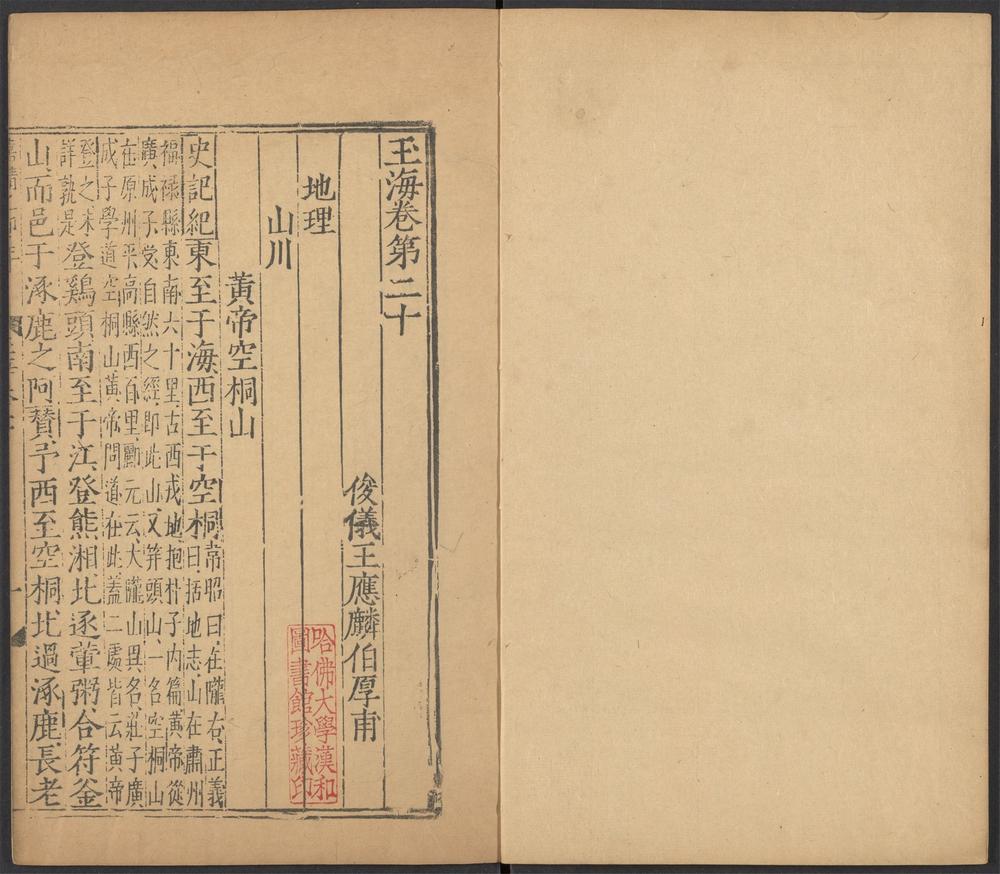 玉海卷第二十
俊儀王應麟伯厚甫
地理
山川
黃帝空桐山
史記紀東至于海西至于空桐韋昭曰在隴右正義
曰括地志山在肅州
福祿縣東南六十里古西戎地抱朴子内篇黃帝從
廣成子受自然之經即此山又筓頭山一名空桐山
在原州平高縣西百里酈元云大隴山異名莊子廣
成子學道空桐山黃帝問道在此蓋二處皆云黃帝
登之未
詳孰是
登鷄頭南至于江登熊湘北逐葷粥合符釜
山而邑于涿鹿之阿贊予西至空桐北過涿鹿長老
哈佛大學漢和
圖書館珍藏印